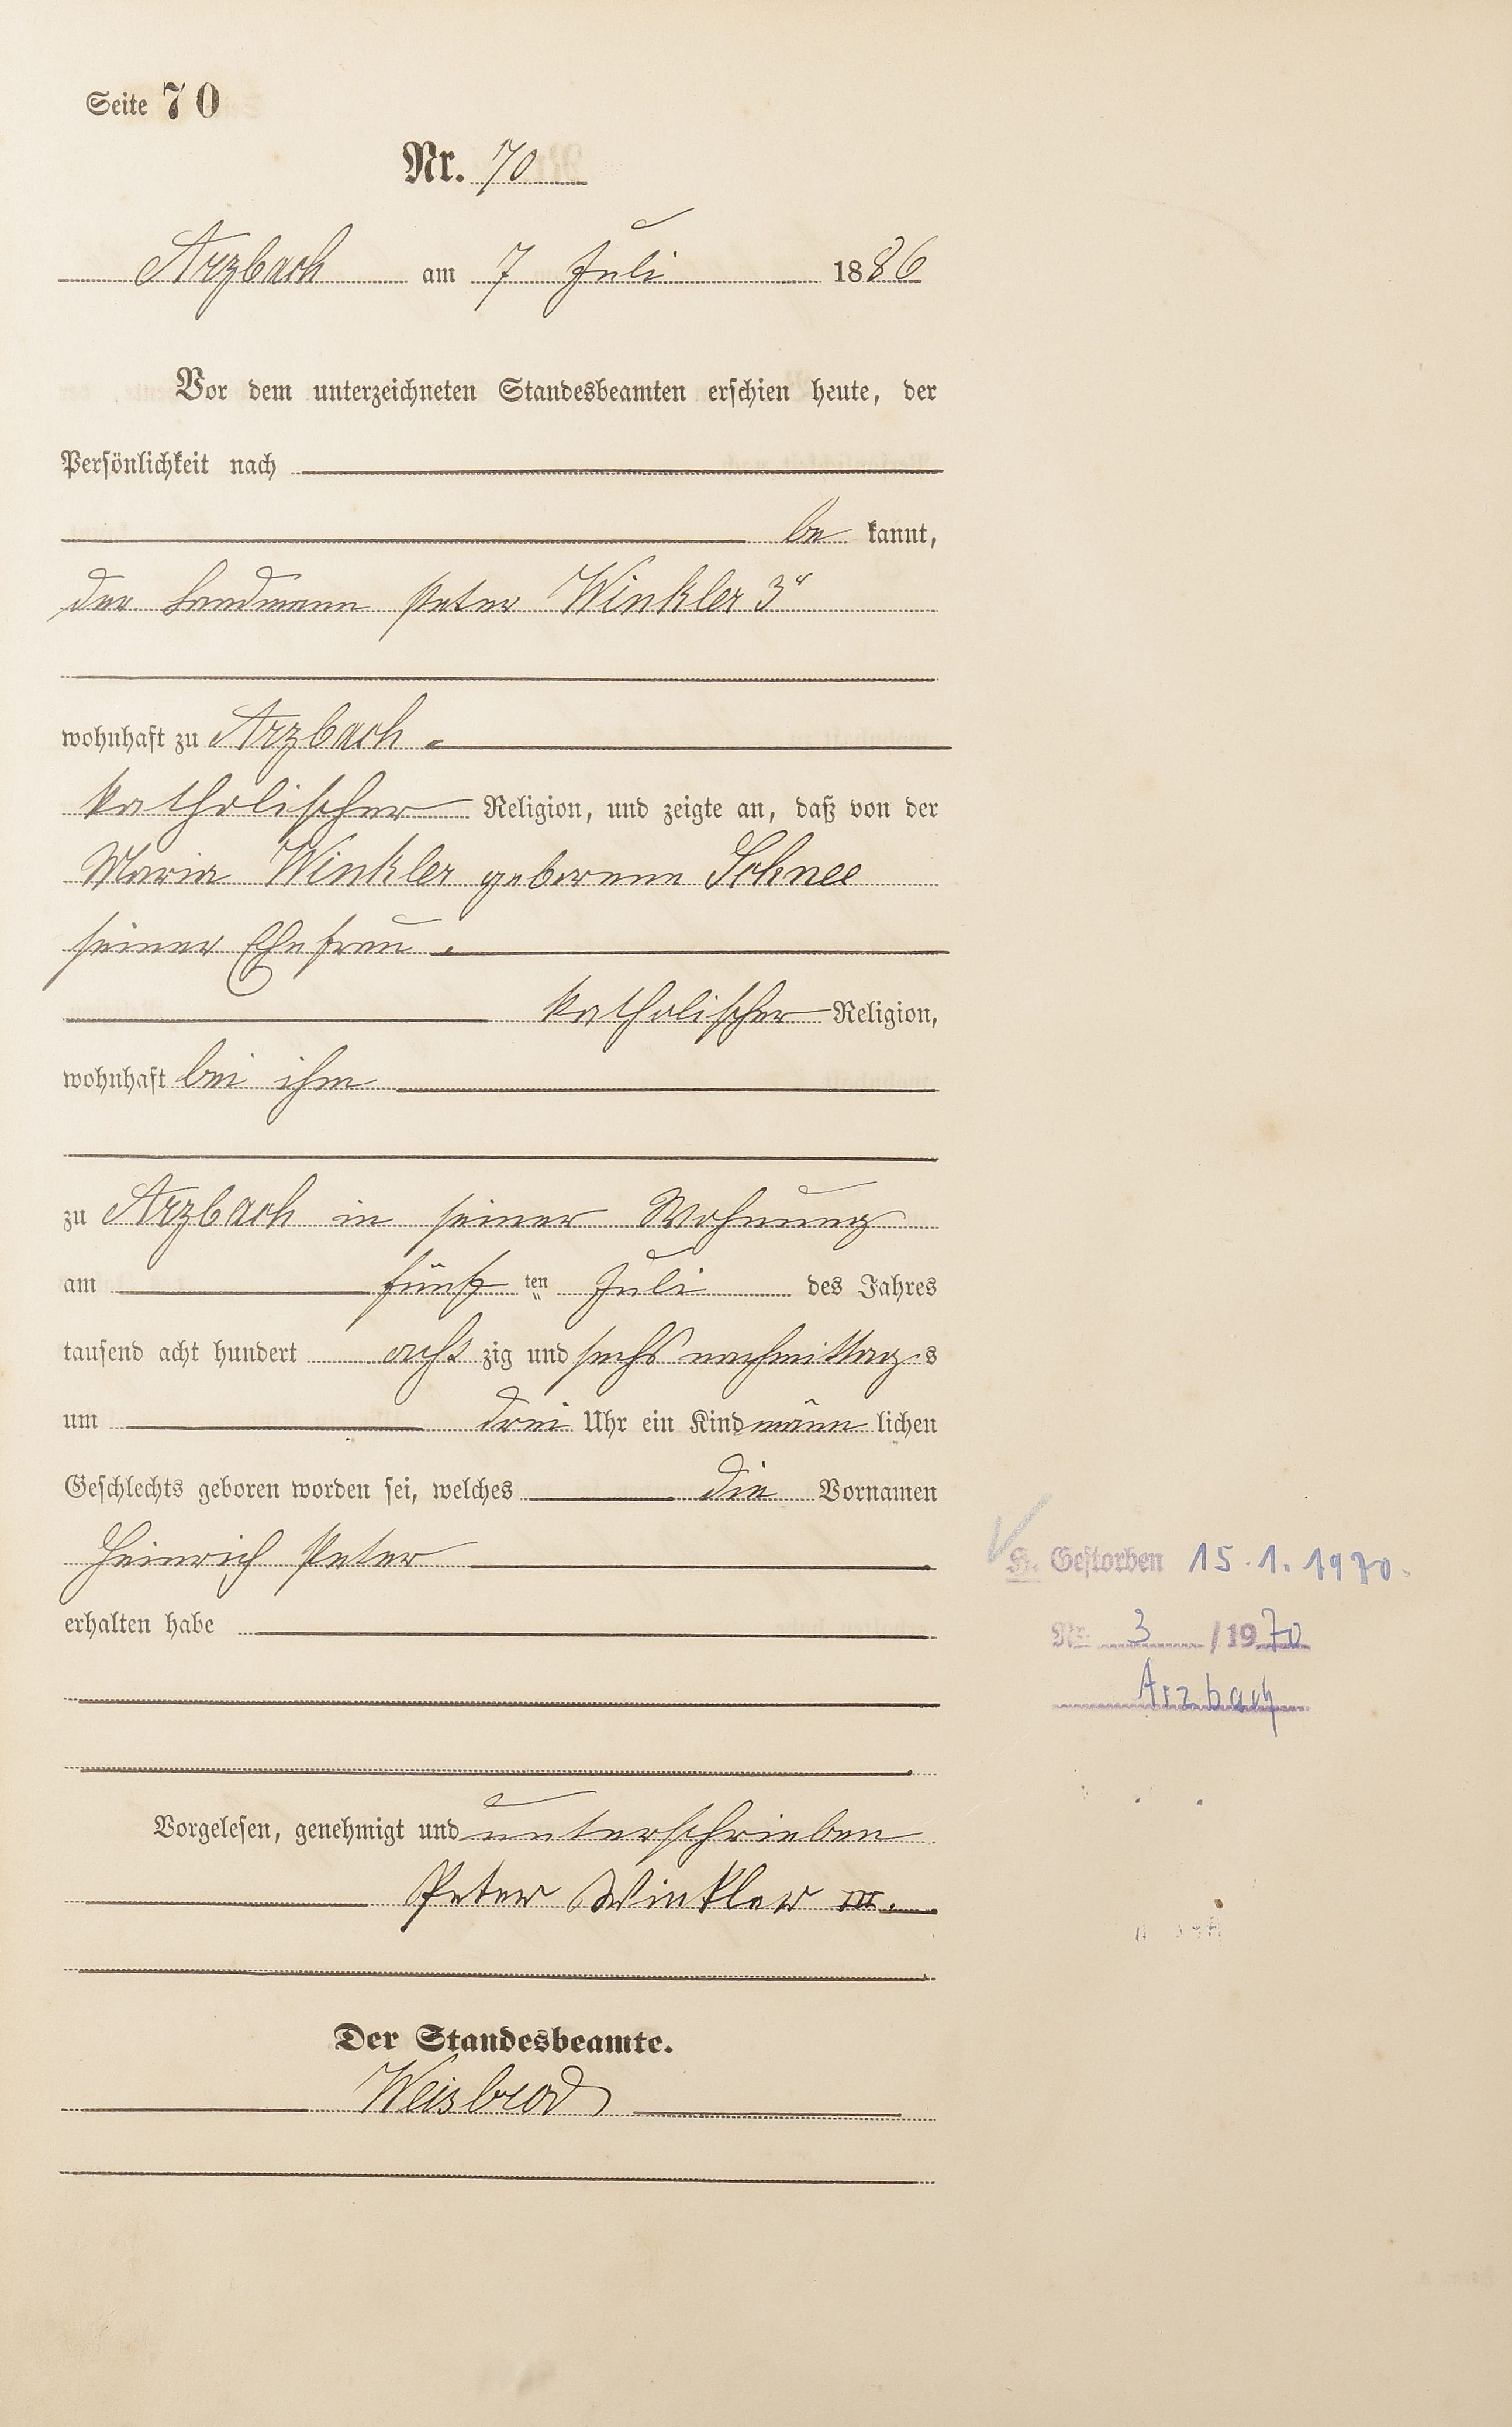 Seite 70
Nr. 70
Arzbach am 7 Juli 1886
Vor dem unterzeichneten Standesbeamten erschien heute, der
Persönlichkeit nach
be kannt,
der Landmann Peter Winkler 3r
wohnhaft zu Arzbach
katholischer Religion, und zeigte an, daß von der
Maria Winkler geborenen Schnee
seiner Ehefrau
katholischer Religion,
wohnhaft bei ihm
zu Arzbach in seiner Wohnung
am fünf ten Juli des Jahres
tausend acht hundert acht zig und sechs nachmittags
um drei Uhr ein Kind männ lichen
Geschlechts geboren worden sei, welches die Vornamen
Heinrich Peter
erhalten habe
Vorgelesen, genehmigt und unterschrieben
Peter Winkler III.
Der Standesbeamte.
Weisbrod
H. Gestorben 15.1.1970.
Nr. 3 / 1970
Arzbach